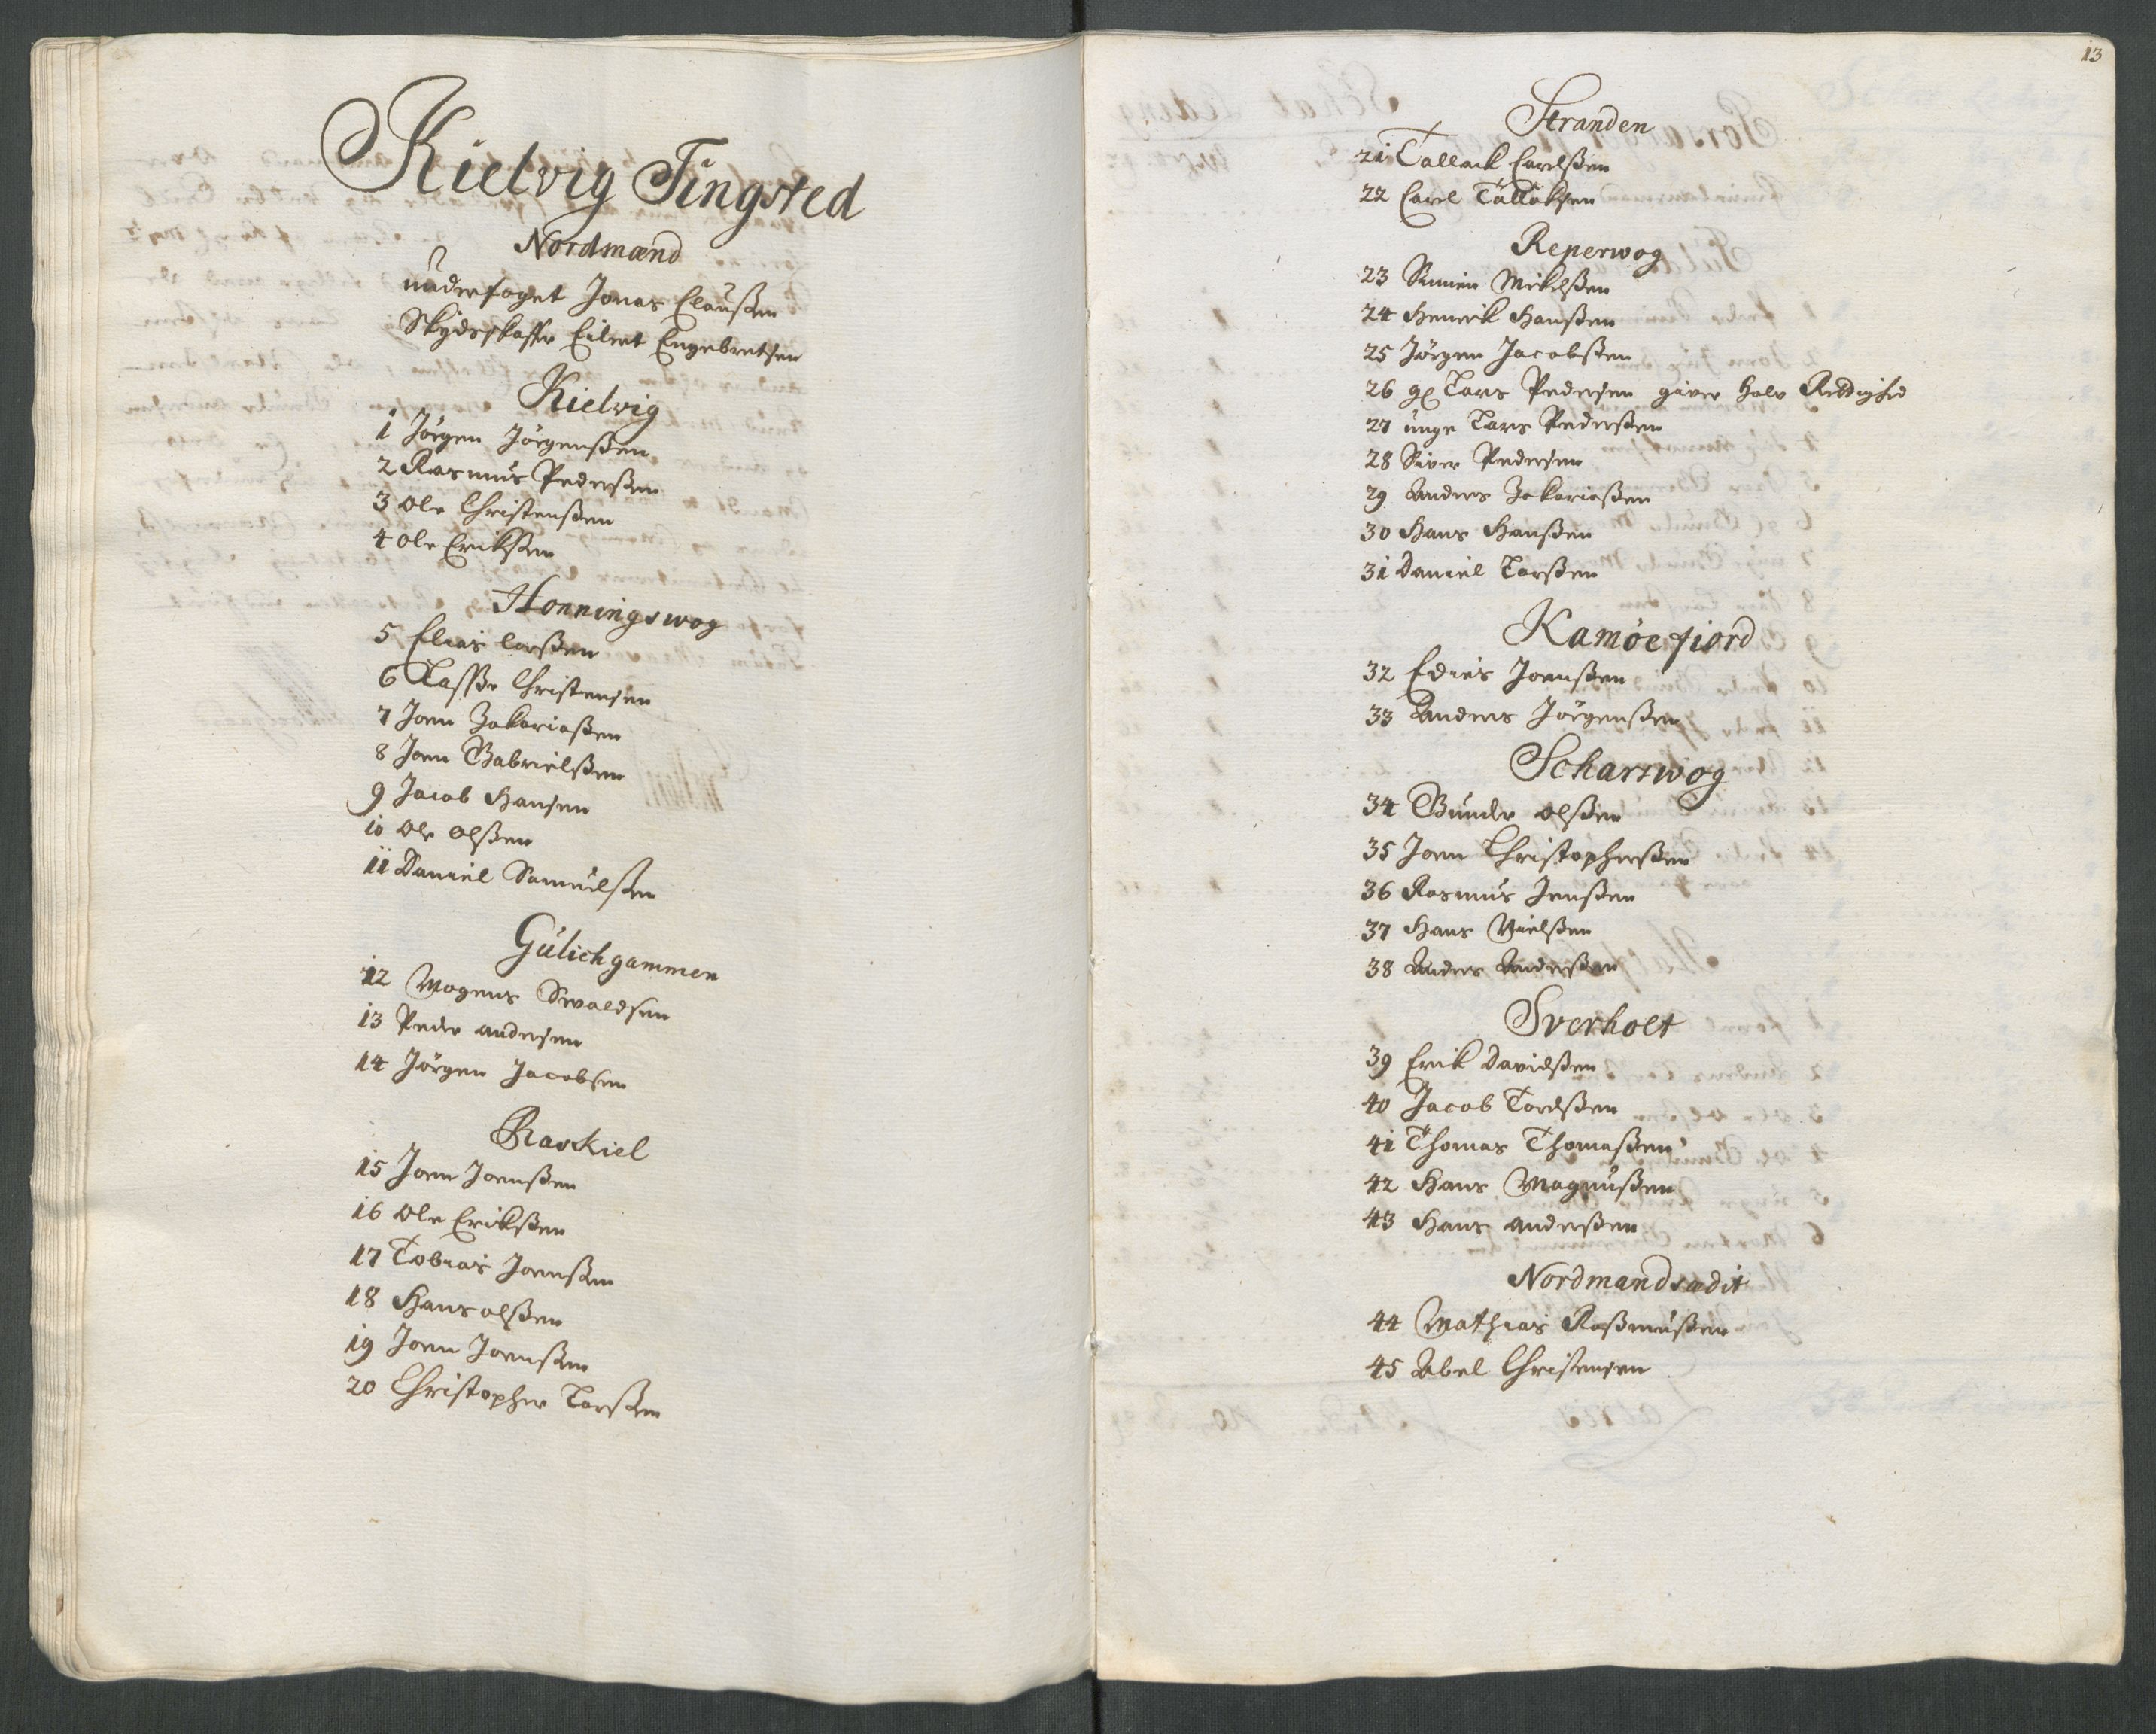 Kielvig Tingsted
Nordmænd
underfoget Jonas Claußen
Skydsskaffer Eilert Engebretsen
Kielvig
1 Jörgen Jörgenßen
2 Rasmus Pederßen
3 Ole Christenßen
4 Ole Erikßen
Honningswog
5 Elias Larßen
6 Lasse Christensen
7 Joen Zakariaßen
8 Joen Gabrielßen
9 Jacob Hansen
10 Ole Olßen
11 Daniel Samuelßen
Gulichgammen
12 Mogens Svaldsen
13 Peder andersen
14 Jörgen Jacobsen
Risskiel
15 Joen Joenßen
16 Ole Erikßen
17 Tobias Joenßen
18 Hans olßen
19 Joen Joenßen
20 Christopher Larßen
13
Stranden
21 Tallack Carelßen
22 Carel Tallaksen
Reperwog
23 Simen Mikelßen
24 Henrik Hanßen
25 Jörgen Jacobßen
26 gl Lars Pedersen giver halv Rettighed
27 unge Lars Pederßen
28 Siver Pedersen
29 Anders Zakariaßen
30 Hans Hanßen
31 Daniel Larßen
Kamöefiord
32 Edies Joenßen
33 Anders Jörgenßen
Scharswog
34 Gunder olßen
35 Joen Christopherßen
36 Rasmus Jenßen
37 Hans Nielßen
38 Anders Anderßen
Sverholt
39 Erik Davidßen
40 Jacob Tordßen
41 Thomas Thomaßen
42 Hans Magnußen
43 Hans anderßen
Nordmandsædit
44 Mathias Raßmußen
45 Abel Christensen